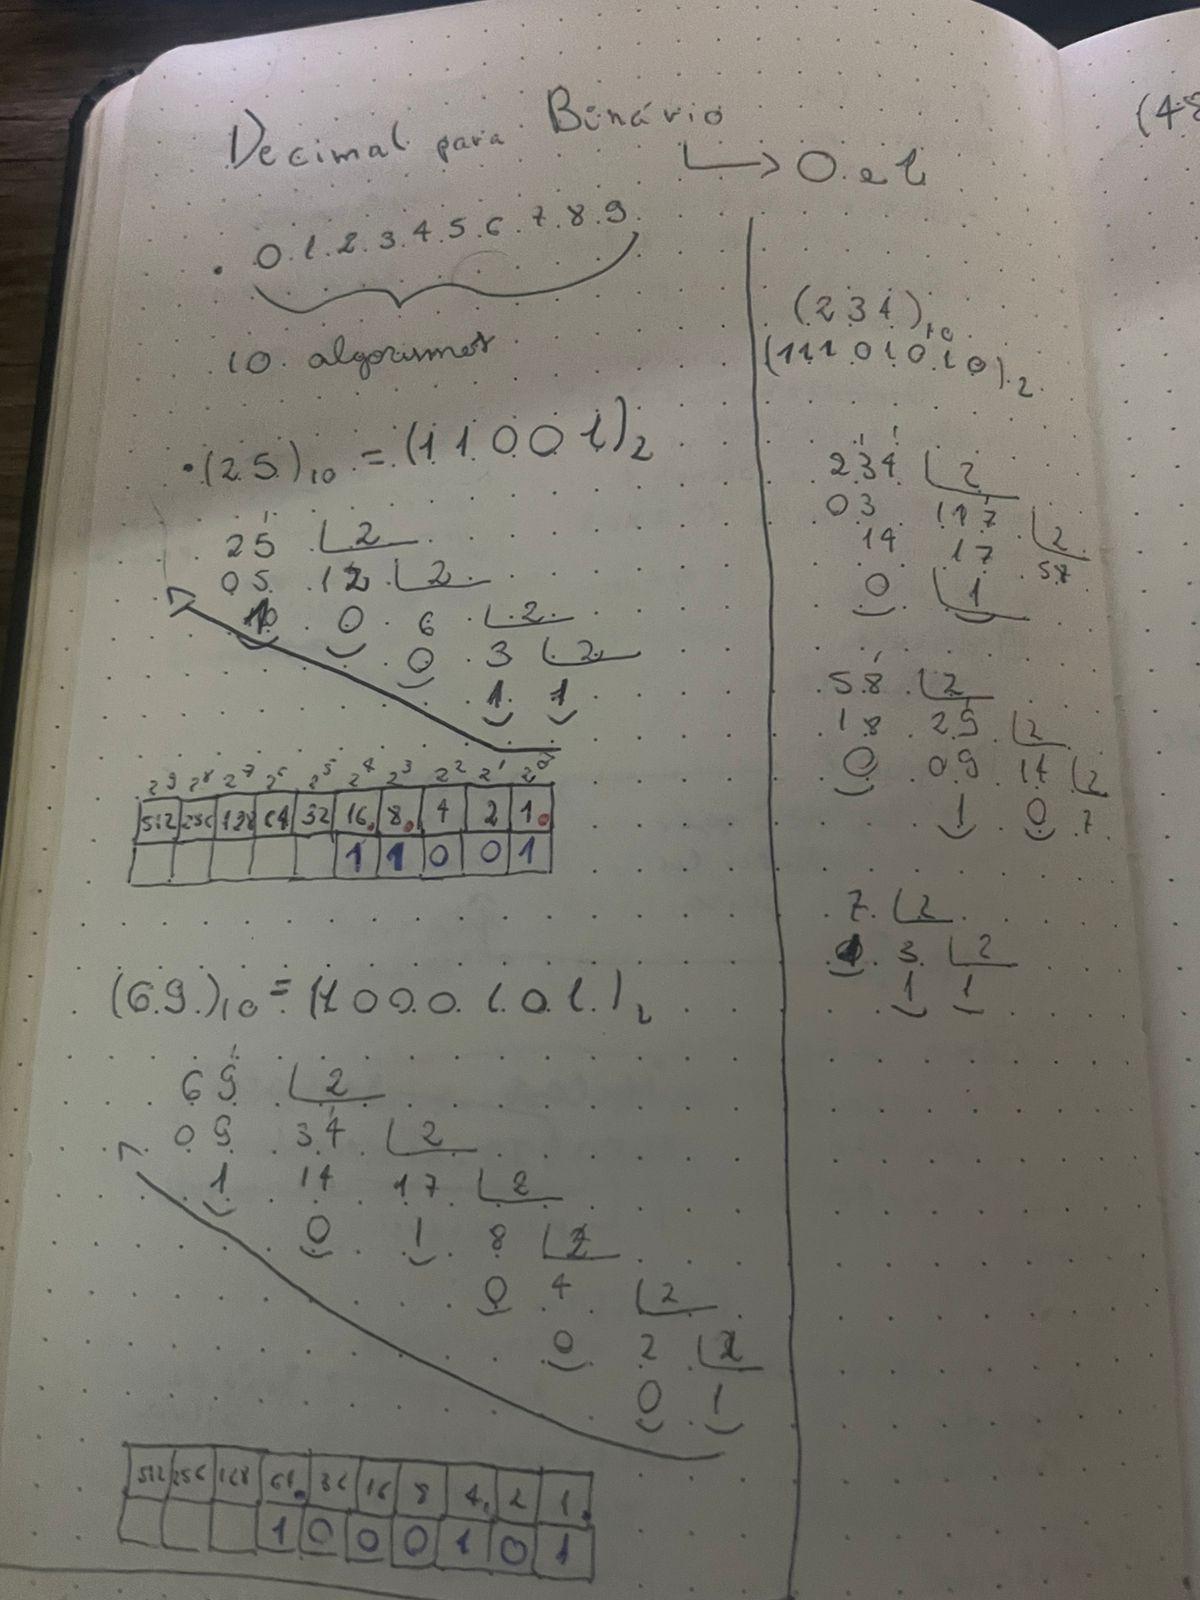 Decimal para Binário
0 e 1
. 0.1.2.3.4.5.6.7.8.9
10 algorismos
• (25)10 = (11001)2
25 2
05 12 2
1 0 6 2
0 3 2
1 1
2^9 2^8 2^7 2^6 2^5 2^4 2^3 2^2 2^1 2^0
512 256 128 64 32 16 8 4 2 1
1 1 0 0 1
(69)10 = (1000101)2
69 2
09 34 2
1 14 17 2
0 1 8 2
0 4 2
0 2 2
0 1
512 256 128 64 32 16 8 4 2 1
1 0 0 0 1 0 1
(234)10
(11101010)2
234 2
03 117 2
14 17 57
0 1
58 2
18 29 2
0 09 14 2
1 0 7
7 2
1 3 2
1 1
(48